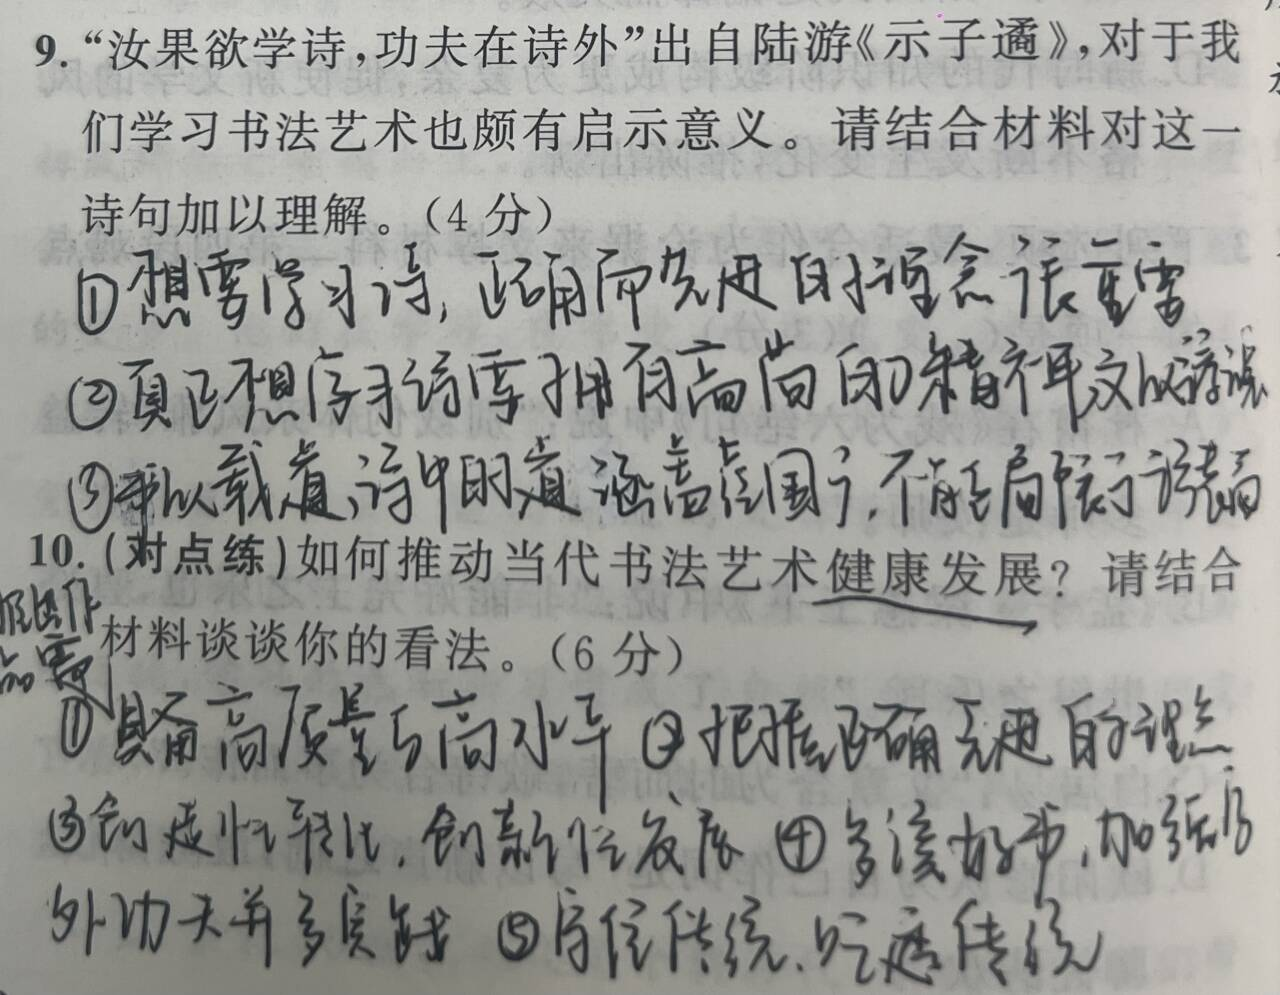 9. “汝果欲学诗，功夫在诗外”出自陆游《示子遹》，对于我
们学习书法艺术也颇有启示意义。请结合材料对这一
诗句加以理解。（4 分）
①想要学习诗，正确而先进的理念很重要
②真正想学习诗需拥有高尚的精神文化
③以载道，诗中的道涵盖 不能局限于诗
10. (对点练)如何推动当代书法艺术健康发展？请结合
作
品需
材料谈谈你的看法。（6 分）
①具备高质量与高水平 ②把握正确先进的理念
③创造性转化，创新性发展 ④多读好书，加强
外功夫并多实践 ⑤守住传统、吃透传统